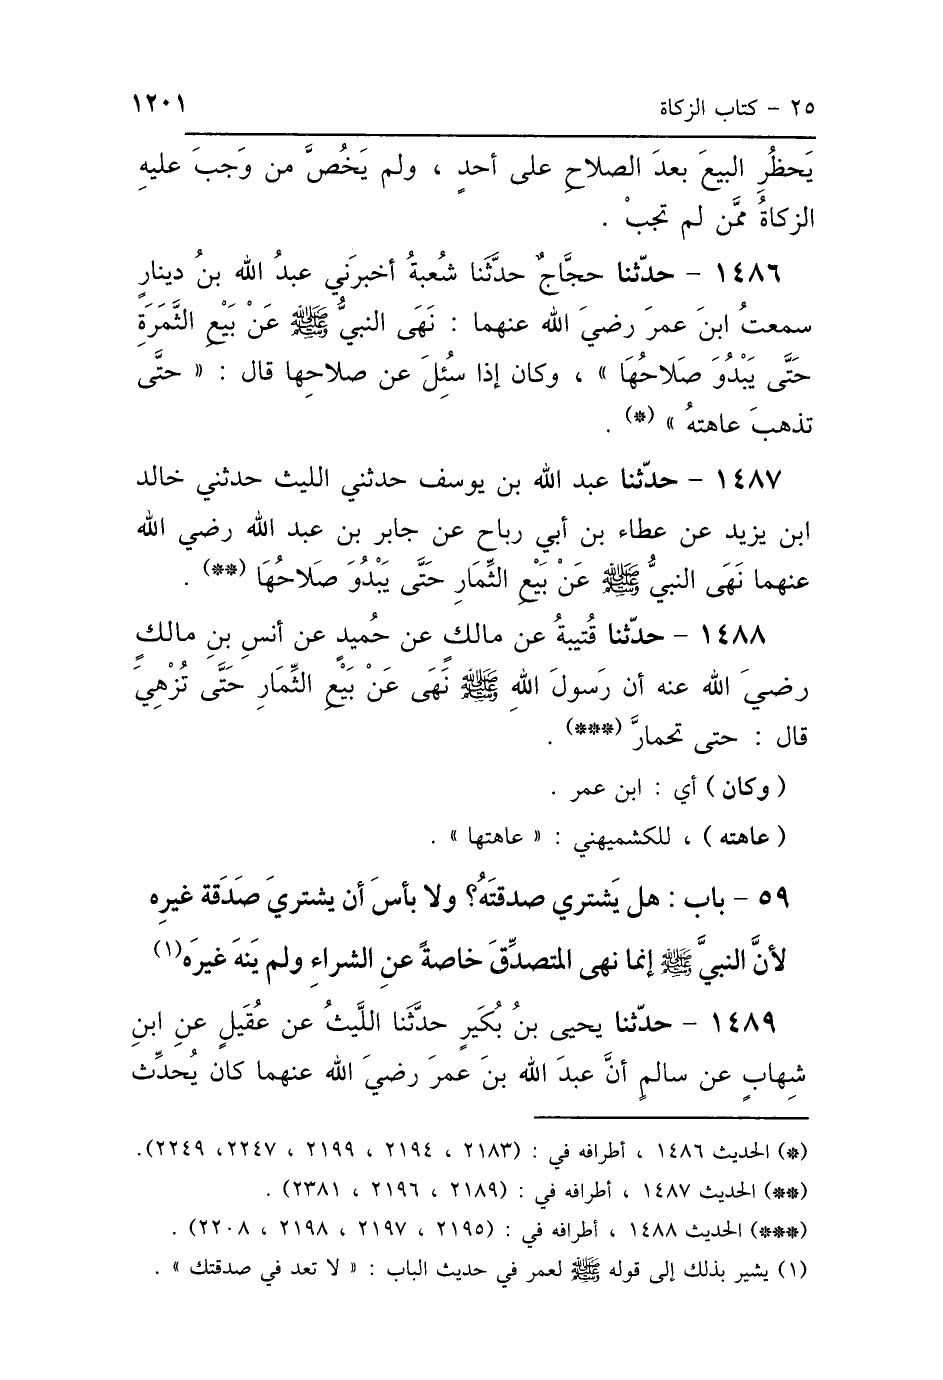 ٢٥ - كتاب الزكاة ١٢٠١
يَحظُرِ البيعَ بعدَ الصلاحِ على أحدٍ ، ولم يَخُصَّ من وَجبَ عليهِ
الزكاةُ ممَّن لم تجبْ .
١٤٨٦ - حدّثنا حجَّاجٌ حدَّثَنا شُعبةُ أخبرَني عبدُ الله بنُ دينارٍ
سمعتُ ابنَ عمرَ رضيَ الله عنهما : نَهَى النبيُّ ﷺ عَنْ بَيْعِ الثَّمَرَةِ
حَتَّى يَبْدُوَ صَلاحُهَا » ، وكان إذا سُئِلَ عن صلاحِها قال : « حتَّى
تذهبَ عاهتهُ » (*) .
١٤٨٧ - حدّثنا عبد الله بن يوسف حدثني الليث حدثني خالد
ابن يزيد عن عطاء بن أبي رباح عن جابر بن عبد الله رضي الله
عنهما نَهَى النبيُّ ﷺ عَنْ بَيْعِ الثِّمَارِ حَتَّى يَبْدُوَ صَلاحُهَا (**) .
١٤٨٨ - حدّثنا قُتيبةُ عن مالكٍ عن حُميدٍ عن أنسِ بنِ مالكٍ
رضيَ الله عنه أن رَسولَ اللهِ ﷺ نَهَى عَنْ بَيْعِ الثِّمَارِ حَتَّى تُزْهِيَ
قال : حتى تحمارَّ (***) .
( وكان ) أي : ابن عمر .
( عاهته ) ، للكشميهني : « عاهتها » .
٥٩ - باب : هل يَشتري صدقتَهُ؟ ولا بأسَ أن يشتريَ صَدَقة غيرِه
لأنَّ النبيَّ ﷺ إنما نهى المتصدِّقَ خاصةً عنِ الشراءِ ولم يَنهَ غيرَه (١)
١٤٨٩ - حدّثنا يحيى بنُ بُكَيرٍ حدَّثَنا اللَّيثُ عن عُقَيلٍ عنِ ابنِ
شِهابٍ عن سالمٍ أنَّ عبدَ الله بنَ عمرَ رضيَ الله عنهما كان يُحدِّث
(*) الحديث ١٤٨٦ ، أطرافه في : (٢١٨٣ ، ٢١٩٤ ، ٢١٩٩ ، ٢٢٤٧، ٢٢٤٩).
(**) الحديث ١٤٨٧ ، أطرافه في : (٢١٨٩ ، ٢١٩٦ ، ٢٣٨١) .
(***) الحديث ١٤٨٨ ، أطرافه في : (٢١٩٥ ، ٢١٩٧ ، ٢١٩٨ ، ٢٢٠٨) .
(١) يشير بذلك إلى قوله ﷺ لعمر في حديث الباب : « لا تعد في صدقتك » .